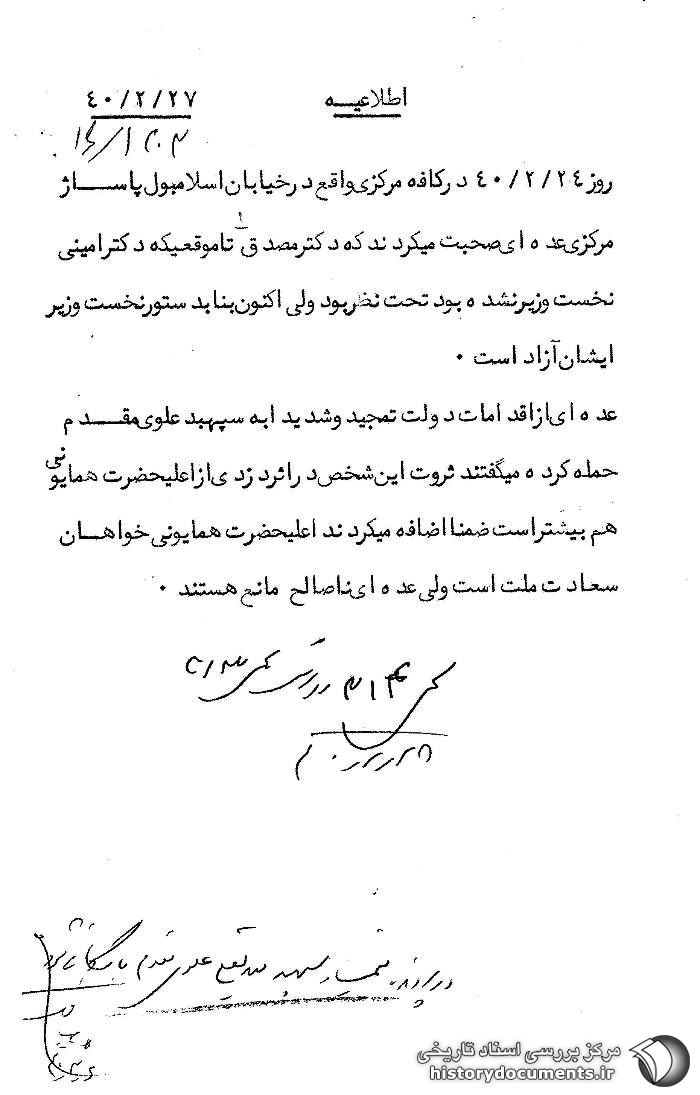 اطلاعیـــه ٤٠/٢/٢٧
روز ٤٠/٢/٢٤ در کافه مرکزی واقع در خیابان اسلامبول پاســـاژ
مرکزی عده ای صحبت میکردند که دکتر مصدق تا موقعیکه دکتر امینی
نخست وزیر نشده بود تحت نظر بود ولی اکنون بنا بدستور نخست وزیر
ایشان آزاد است ٠
عده ای از اقدامات دولت تمجید و شدیدا به سپهبد علوی مقـــدم
حمله کرده میگفتند ثروت این شخص در اثر دزدی از اعلیحضرت همایونی
هم بیشتر است ضمنا اضافه میکردند اعلیحضرت همایونی خواهـــان
سعادت ملت است ولی عده ای ناصالح مانع هستند ٠
در پرونده تیمسار سپهبد علوی مقدم بایگانی شود
مرکز بررسی اسناد تاریخی
historydocuments.ir